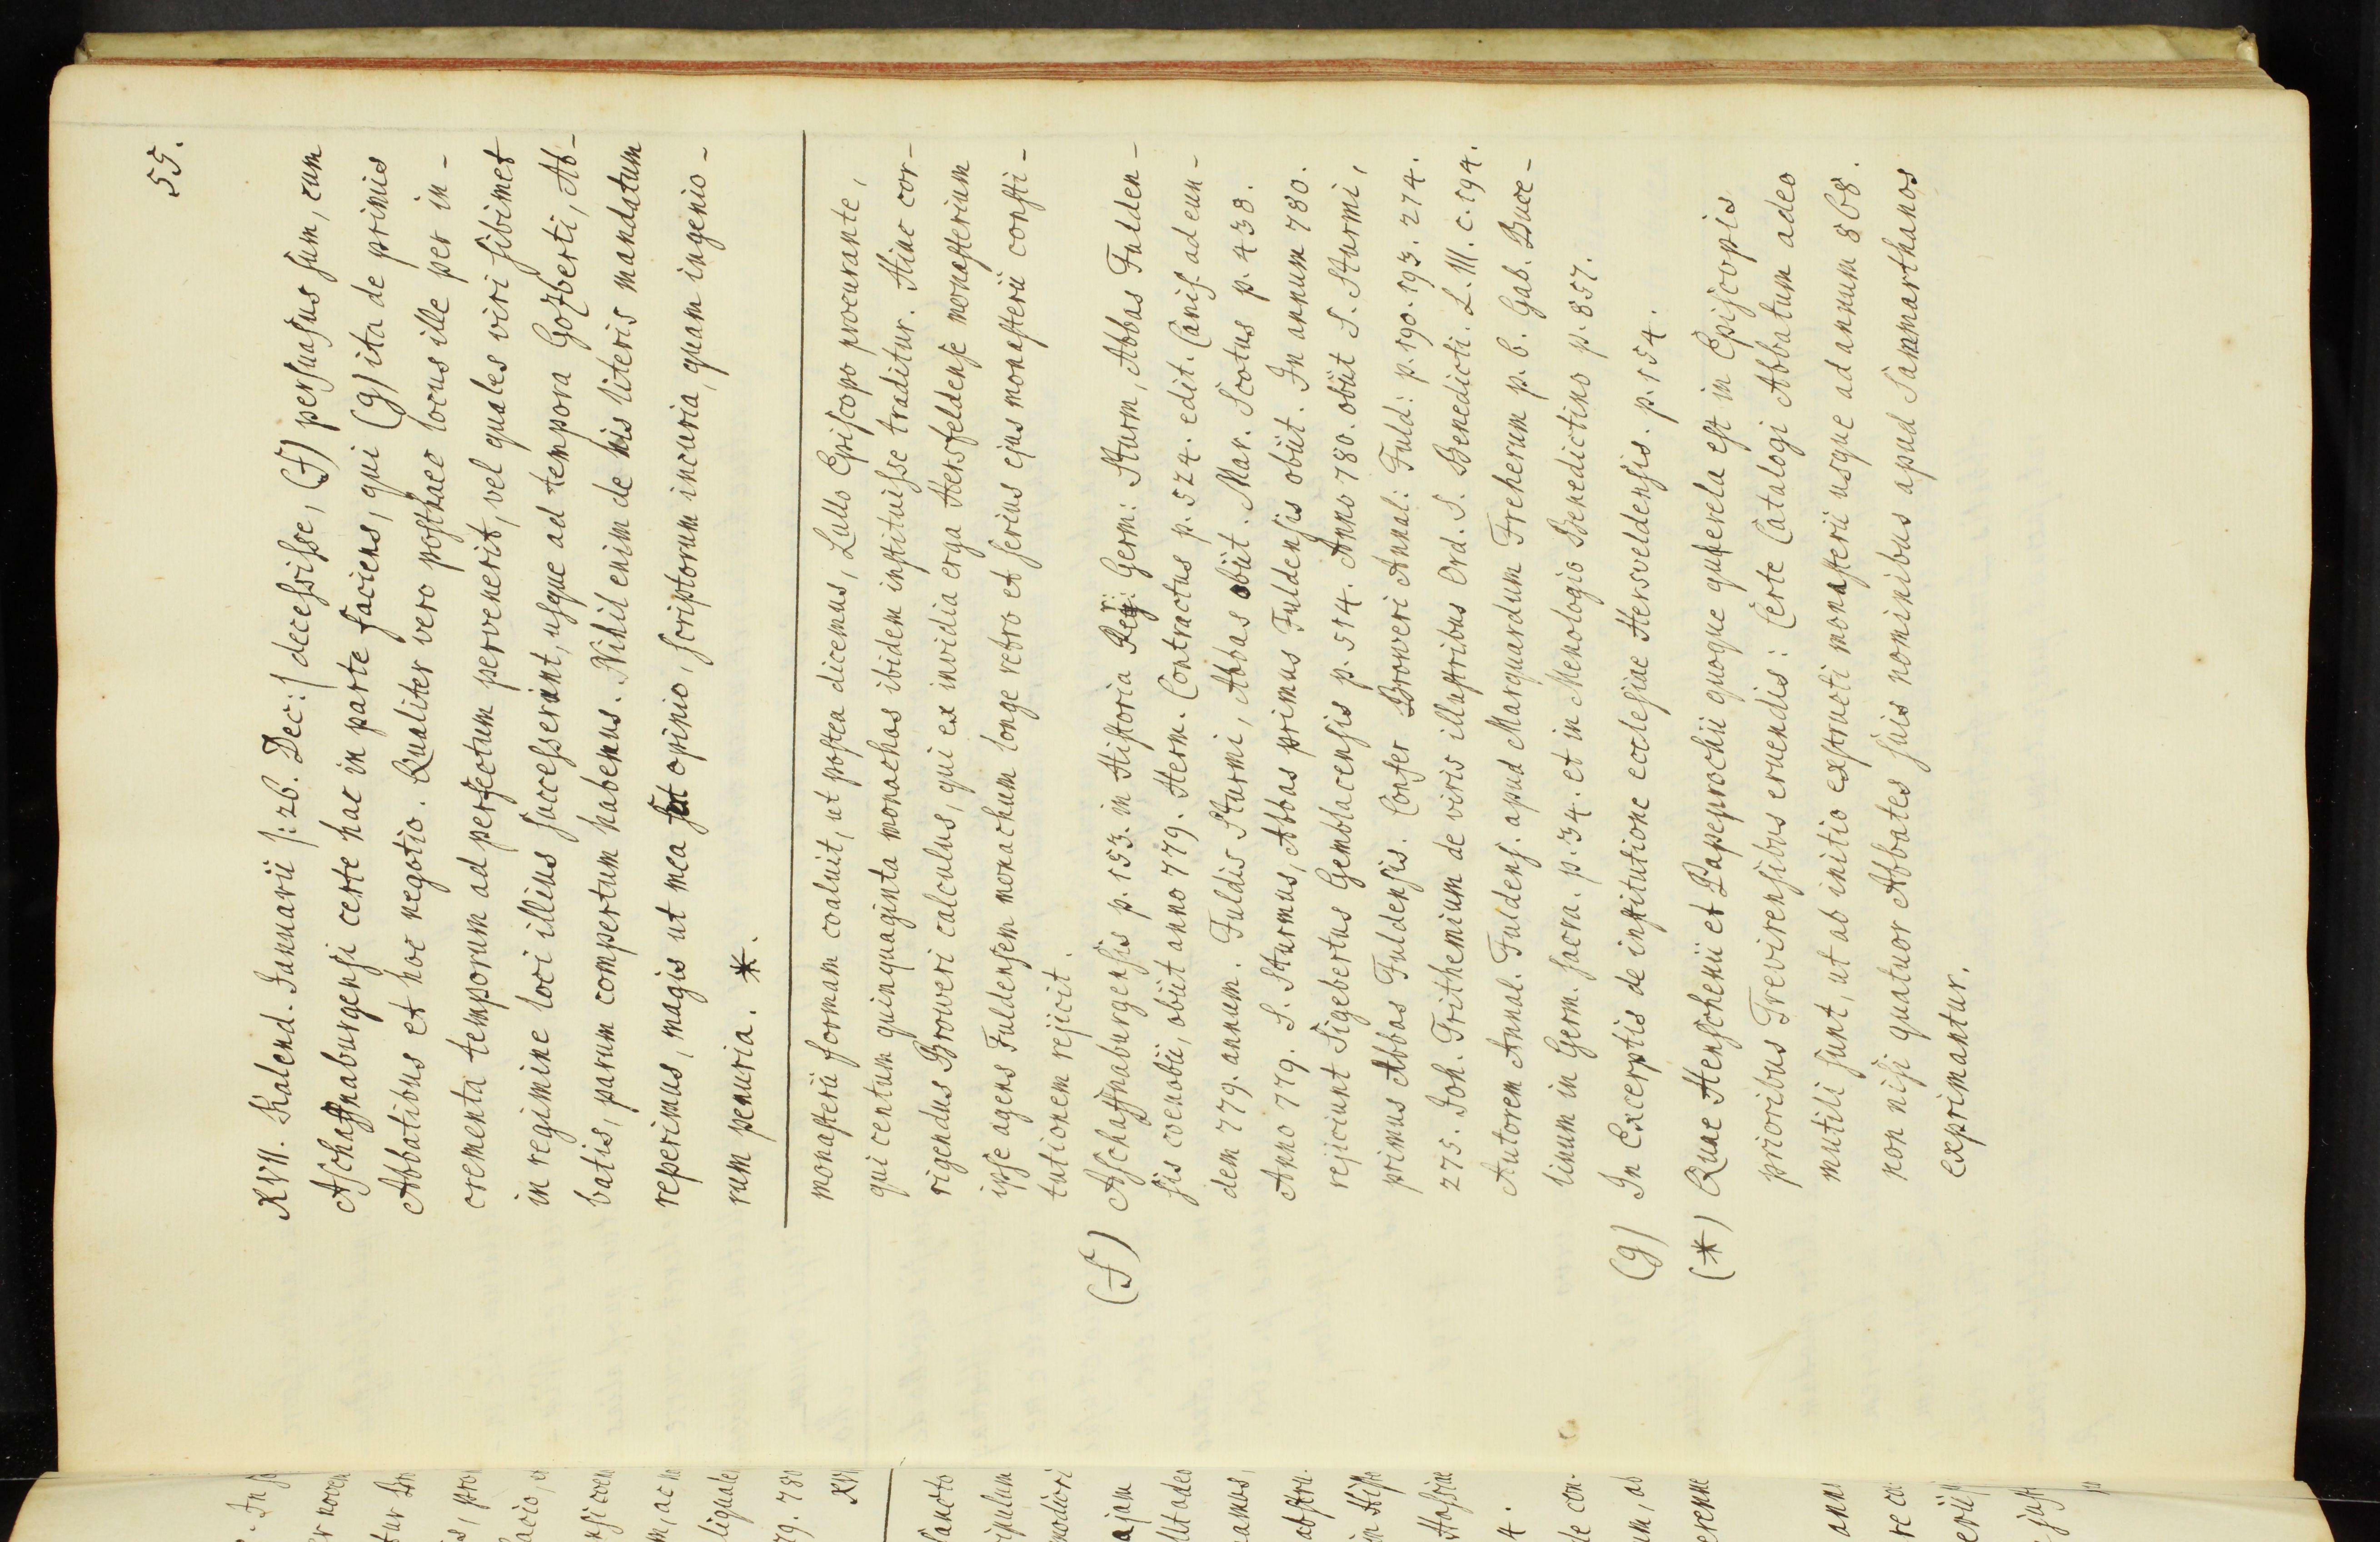 55.
XVII. Kalend. Januarii /: 26. Dec:/ decessisse, (f) persuasus sum, cum
Aschaffnaburgensi certe hac in parte faciens, qui (g) ita de primis
Abbatibus et hoc negotio. Qualiter vero posthaec locus ille per in-
crementa temporum ad perfectum pervenerit, vel quales viri sibimet
in regimine loci illius successerint, usque ad tempora Gozberti, Ab-
batis, parum compertum habemus. Nihil enim de his literis mandatum
reperimus, magis ut mea fert opinio, scriptorum incuria, quam ingenio-
rum penuria. *.
monasterii formam coaluit, ut postea dicemus, Lullo Episcopo procurante,
qui centum quinquaginta monachos ibidem instituisse traditur. Hinc cor-
rigendus Broweri calculus, qui ex invidia erga Hersfeldense monasterium
ipse agens Fuldensem monachum longe retro et serius ejus monasterii consti-
tutionem rejicit.
(f) Aschaffnaburgensis p. 153. in Historia Rer: Germ: Sturm, Abbas Fulden-
sis coenobii, obiit anno 779. Herm. Contractus p. 524. edit. Canis. ad eun-
dem 779. annum. Fuldis Sturmi, Abbas obiit. Mar. Scotus p. 438.
Anno 779. S. Sturmus, Abbas primus Fuldensis obiit. In annum 780.
rejiciunt Sigebertus Gemblacensis p. 514. Anno 780. obiit S. Sturmi,
primus Abbas Fuldensis. Confer Broweri Annal: Fuld: p. 190. 193. 274.
275. Joh. Trithemium de viris illustribus Ord. S. Benedicti. L. III. c. 194.
Autorem Annal. Fuldens. apud Marquardum Freherum p. 6. Gab. Buce-
linum in Germ. sacra. p. 34. et in Menologio Benedictino p. 857.
(g) In Excerptis de institutione ecclesiae Hersveldensis. p. 154.
(*) Quae Henschenii et Papeprochii quoque querela est in Episcopis
prioribus Trevirensibus eruendis: Certe Catalogi Abbatum adeo
mutili sunt, ut ab initio exstructi monasterii usque ad annum 868.
non nisi quatuor Abbates suis nominibus apud Sammarthanos
exprimantur.